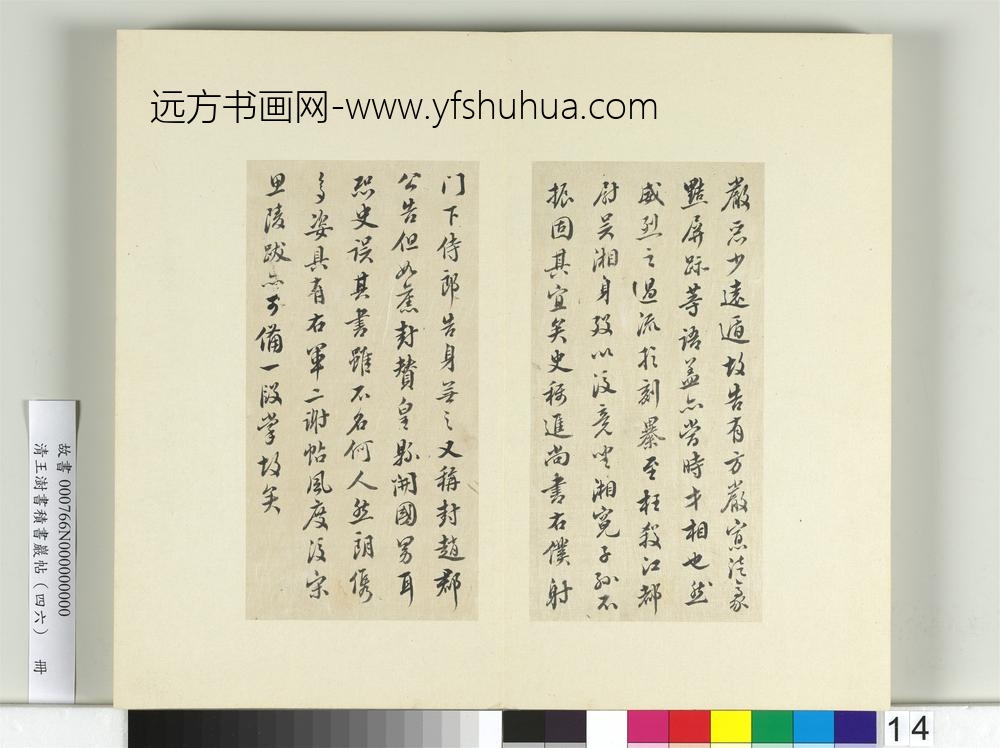 远方书画网-www.yfshuhua.com
嚴忌少遠遁故告有方嚴憲法豪
黠屏跡等语蓋亦當時才相也然
威烈之過流於刻暴至枉殺江都
尉吴湘身殁以後竟坐湘寃子孙不
振固其宜矣史稱進尚書右僕射
门下侍郎告身無之又稱封趙郡
公告但如舊封贊皇縣開國男耳
恐史误其書雖不名何人然朗儁
多姿具有右軍二谢帖風度後宋
思陵跋亦可備一段掌故矣
故書 000766N000000000
清王澍書積書巖帖(四六) 冊
14